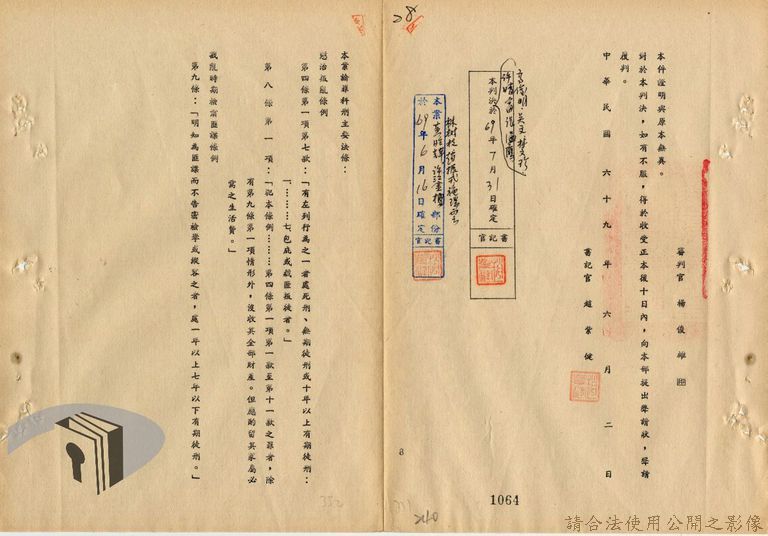 審判官 楊俊雄
本件證明與原本無異。
對於本判決，如有不服，得於收受正本後十日內，向本部提出聲請狀，聲請
覆判。
中華民國六十九年六月二日
書記官 趙蒙健
本判決於69年7月31日確定
書記官
林樹枝 施瑞雲
本案 部份
於69年6月16日確定
書記官
28
8
1064
240
本案論罪科刑主要法條：
懲治叛亂條例
第四條第一項第七款：「有左列行為之一者處死刑、無期徒刑或十年以上有期徒刑：
「………七包庇或藏匿叛徒者。」
第八條第一項：「犯本條例……第四條第一項第一款至第十一款之罪者，除
有第九條第一項情形外，沒收其全部財產。但應酌留其家屬必
需之生活費。」
戡亂時期檢肅匪諜條例
第九條：「明知為匪諜而不告密檢舉或縱容之者，處一年以上七年以下有期徒刑。」
352
請合法使用公開之影像